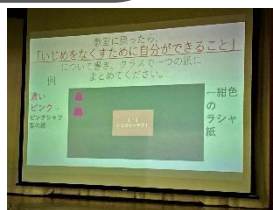 教室に戻ったら、
「いじめをなくすために自分ができること」
について書き、クラスで一つの紙に
まとめてください。
例
濃い
ピンク
一紺色
の
ラシャ
紙